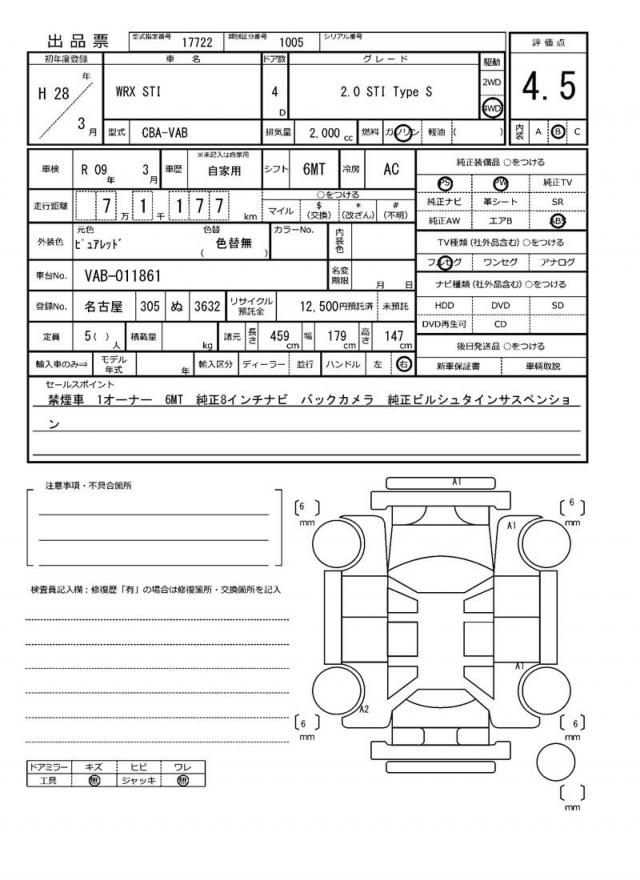 出品票 型式指定番号 17722 類別区分番号 1005 シリアル番号
評価点
4.5
初年度登録 車名 ドア数 グレード 駆動
H 28 年 3 月 WRX STI 4 D 2.0 STI Type S 2WD 4WD
型式 CBA-VAB 排気量 2,000 cc 燃料 ガソリン 軽油 ( ) 内装 A B C
車検 R 09 年 3 月 車歴 ※未記入は自家用 自家用 シフト 6MT 冷房 AC
走行距離 7 万 1 千 1 7 7 km ○をつける
マイル $ (交換) * (改ざん) # (不明)
外装色 元色 ピュアレッド 色替 ( 色替無 ) カラーNo. 内装色
車台No. VAB-011861 名変期限 月 日
登録No. 名古屋 305 ぬ 3632 リサイクル預託金 12,500円預託済 未預託
定員 5( ) 人 積載量 kg 諸元 長さ 459 cm 幅 179 cm 高さ 147 cm
輸入車のみ⇒ モデル年式 年 輸入区分 ディーラー 並行 ハンドル 左 右
純正装備品 ○をつける
PS PW 純正TV
純正ナビ 革シート SR
純正AW エアB ABS
TV種類(社外品含む) ○をつける
フルセグ ワンセグ アナログ
ナビ種類(社外品含む) ○をつける
HDD DVD SD
DVD再生可 CD
後日発送品 ○をつける
新車保証書 車輌取説
セールスポイント
禁煙車 1オーナー 6MT 純正8インチナビ バックカメラ 純正ビルシュタインサスペンショ
ン
注意事項・不具合箇所
検査員記入欄：修復歴「有」の場合は修復箇所・交換箇所を記入
ドアミラー キズ ヒビ ワレ
工具 無 ジャッキ 無
A1
[ 6 ] mm
[ 6 ] mm
A1
A1
A2
[ 6 ] mm
[ 6 ] mm
[ ] mm